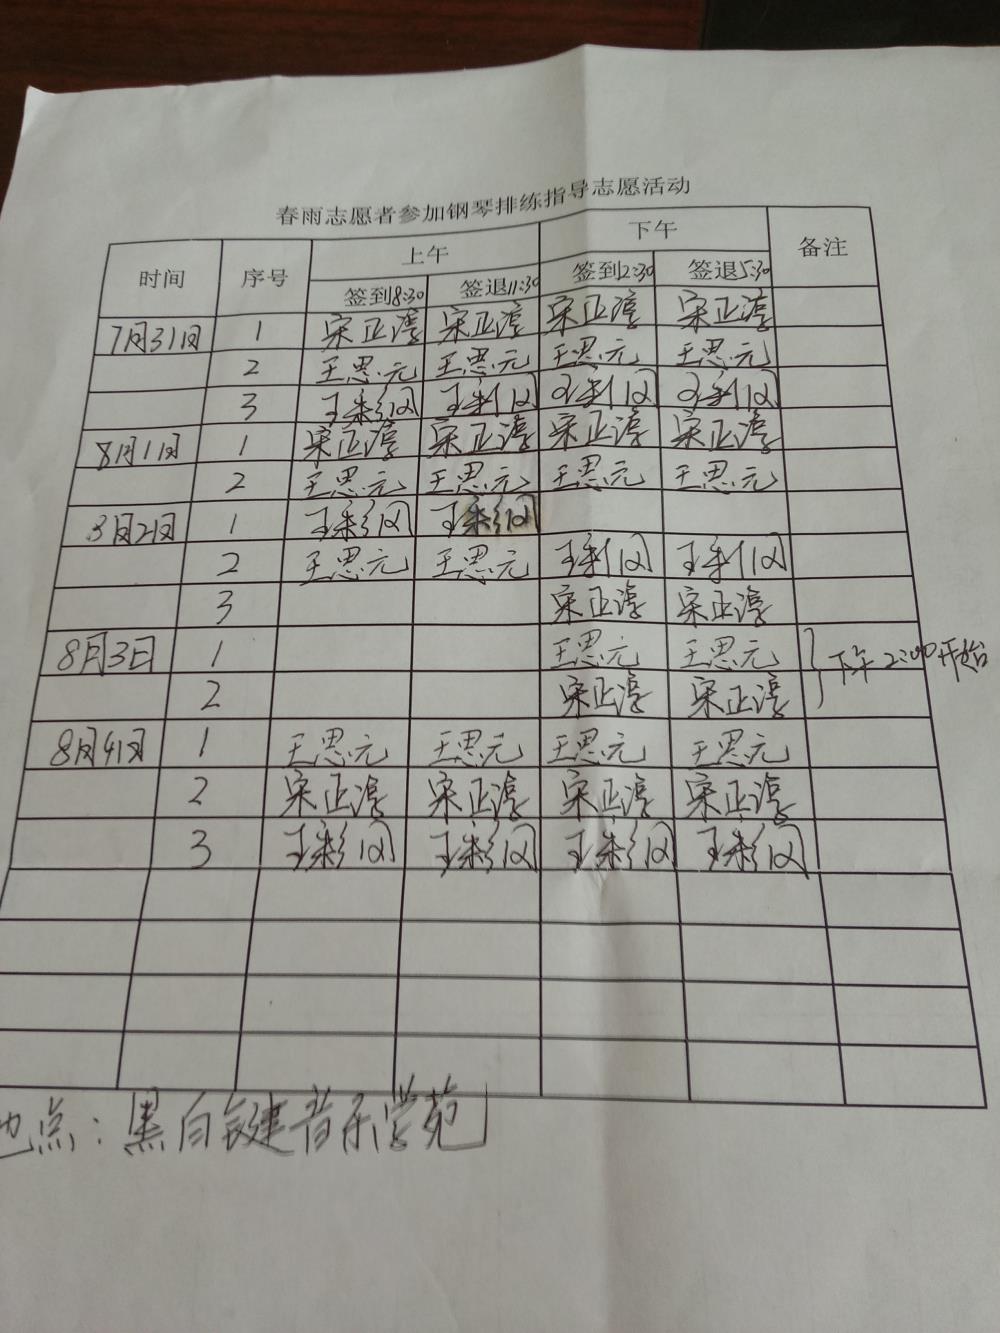 春雨志愿者参加钢琴排练指导志愿活动
时间 序号 上午 下午 备注
签到8:30 签退11:30 签到2:30 签退5:30
7月31日 1 宋正淳 宋正淳 宋正淳 宋正淳
2 王思元 王思元 王思元 王思元
3 王彩 王彩 王彩 王彩
8月1日 1 宋正淳 宋正淳 宋正淳 宋正淳
2 王思元 王思元 王思元 王思元
8月2日 1 王彩 王彩
2 王思元 王思元 王彩 王彩
3 宋正淳 宋正淳
8月3日 1 王思元 王思元 下午2:00开始
2 宋正淳 宋正淳
8月4日 1 王思元 王思元 王思元 王思元
2 宋正淳 宋正淳 宋正淳 宋正淳
3 王彩 王彩 王彩 王彩
地点:黑白键音乐学苑